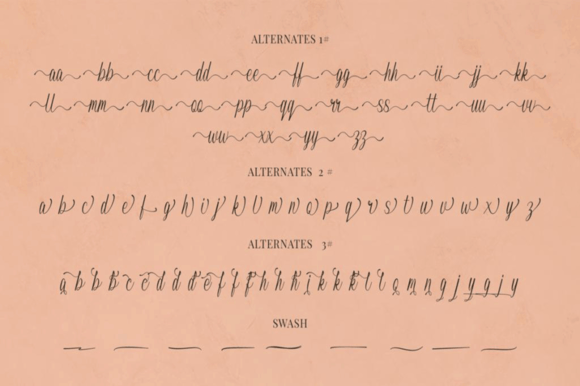 ALTERNATES 1#
aa bb cc dd ee ff gg hh ii jj kk
ll mm nn oo pp qq rr ss tt uu vv
ww xx yy zz
ALTERNATES 2 #
a b c d e f g h i j k l m n o p q r s t u v w x y z
ALTERNATES 3#
SWASH